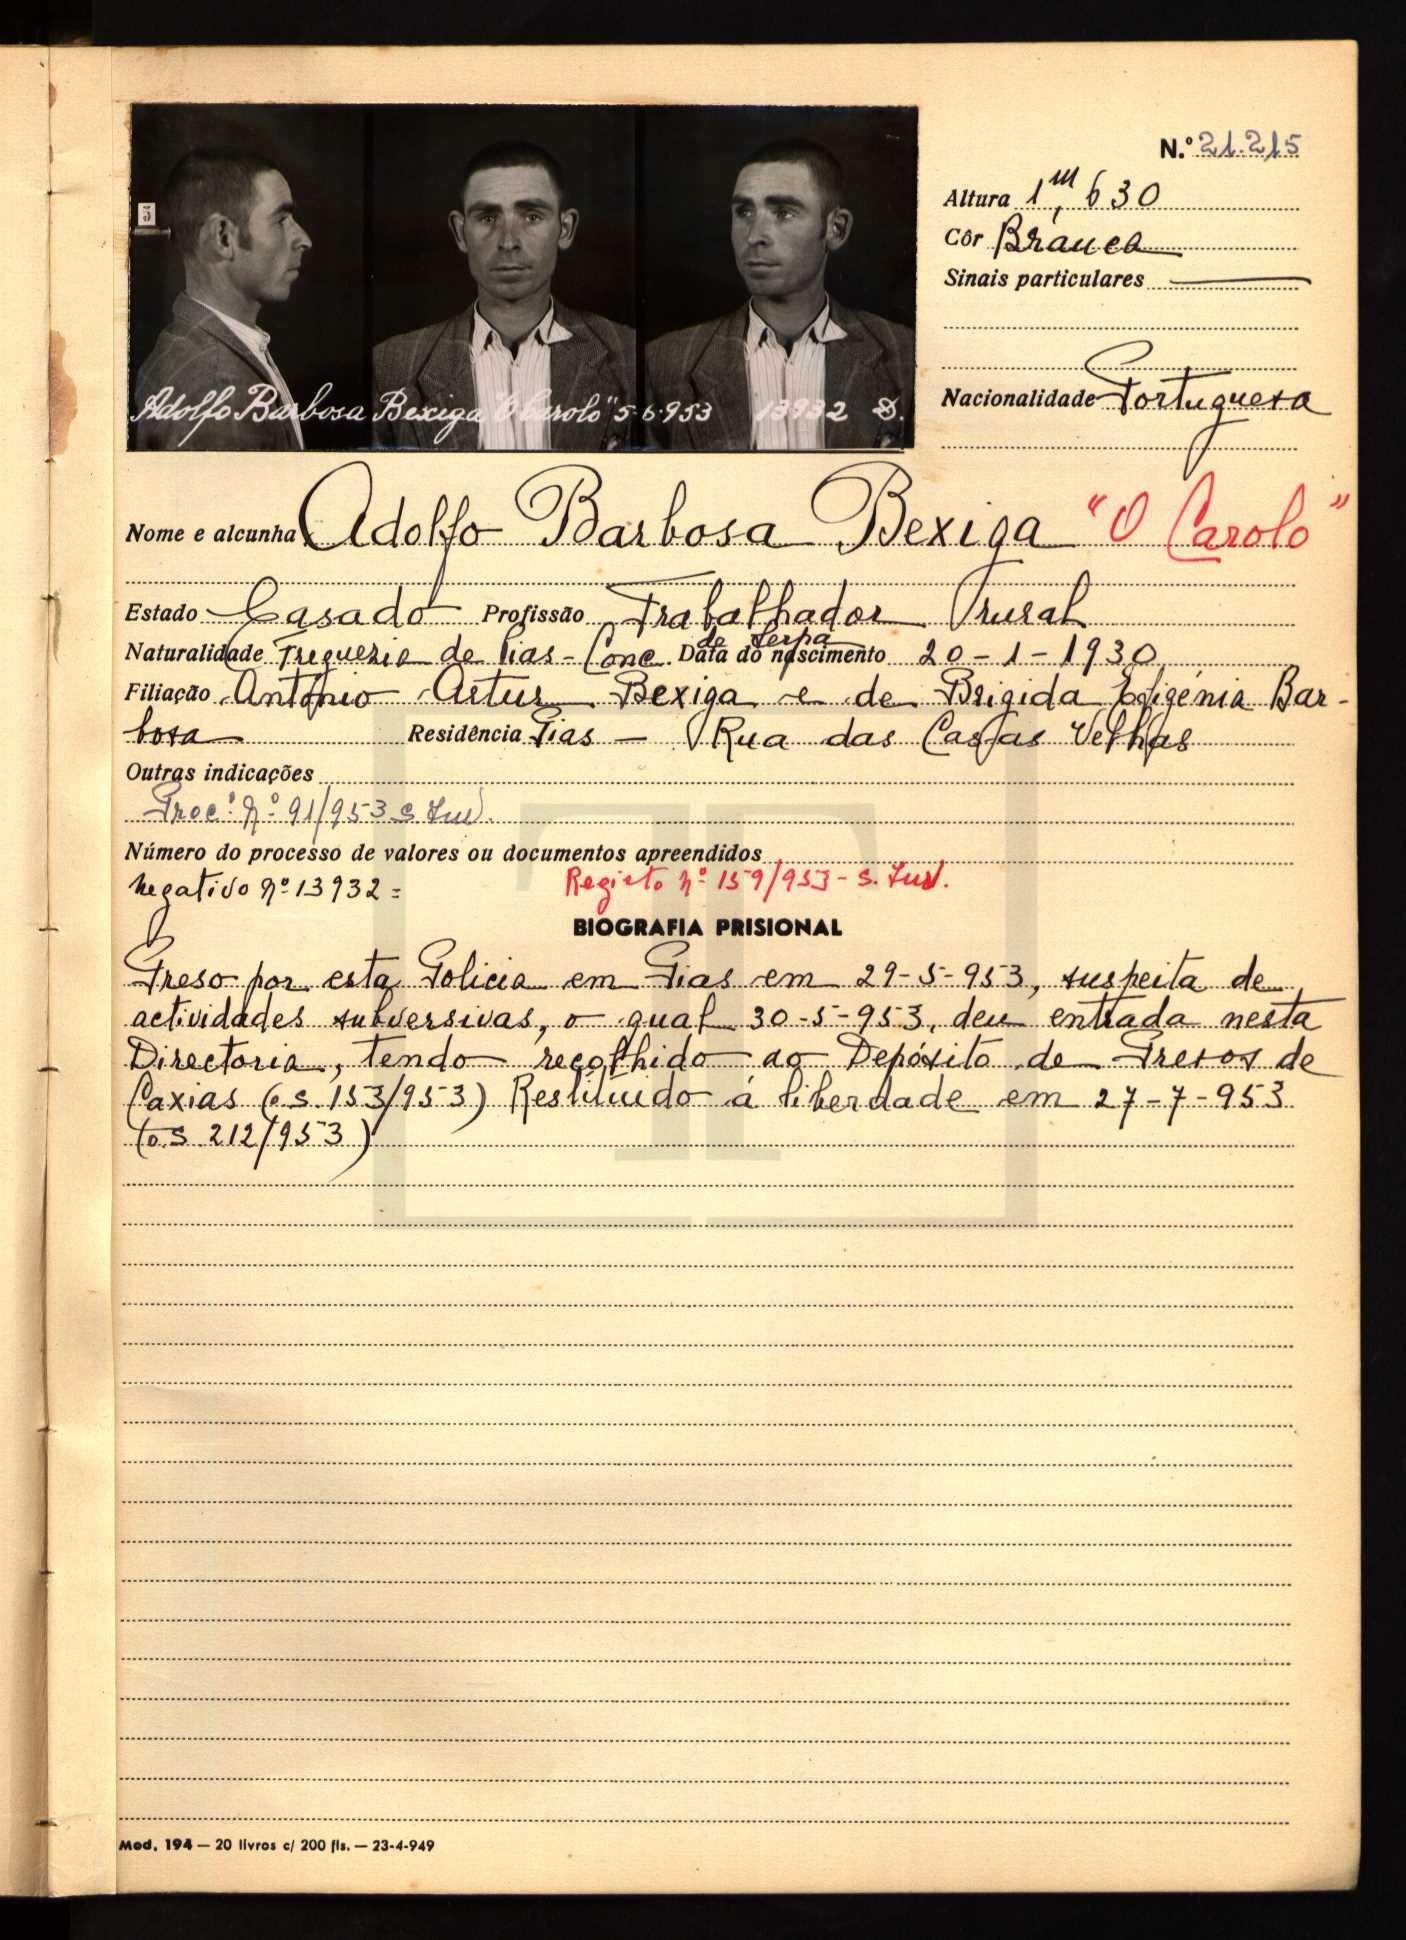 5
Adolfo Barbosa Bexiga "O Carolo" 5-6-953 13932 D.
N.º 21.215
Altura 1,m630
Côr Branca
Sinais particulares
Nacionalidade Portuguesa
Nome e alcunha Adolfo Barbosa Bexiga "O Carolo"
Estado Casado Profissão Trabalhador rural
Naturalidade Freguezia de Pias - Conc. de Serpa Data do nascimento 20-1-1930
Filiação António Artur Bexiga e de Brigida Efigénia Bar-
bosa Residência Pias — Rua das Casas Velhas
Outras indicações
Proc.º Nº 91/953 S. Inv.
Número do processo de valores ou documentos apreendidos
Negativo Nº 13932= Registo Nº 159/953 - S. Inv.
BIOGRAFIA PRISIONAL
Preso por esta Policia em Pias em 29-5-953, suspeita de
actividades subversivas, o qual 30-5-953, deu entrada nesta
Directoria, tendo recolhido ao Depósito de Presos de
Caxias (o.s. 153/953) Restituido á liberdade em 27-7-953
(o.s 212/953)
Mod. 194 — 20 livros c/ 200 fls. — 23-4-949